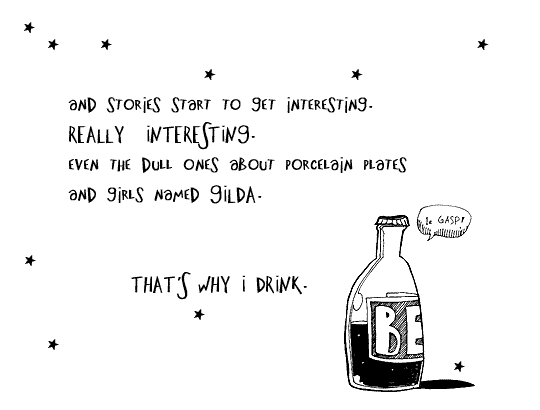 and stories start to get interesting.
REALLY interesting.
EVEN THE DULL ONES aBOUT PORCELAIN PLATES
and girls named gilda.
le GASP!
THAT'S WHY i DRINK.
BE